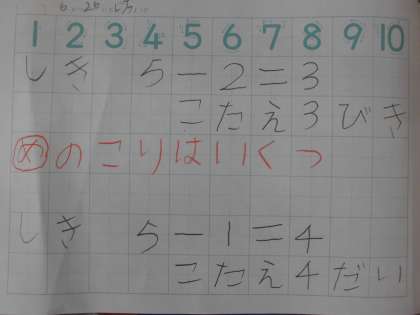 1 2 3 4 5 6 7 8 9 10
しき 5-2=3
こたえ3びき
めのこりはいくつ
しき 5-1=4
こたえ4だい